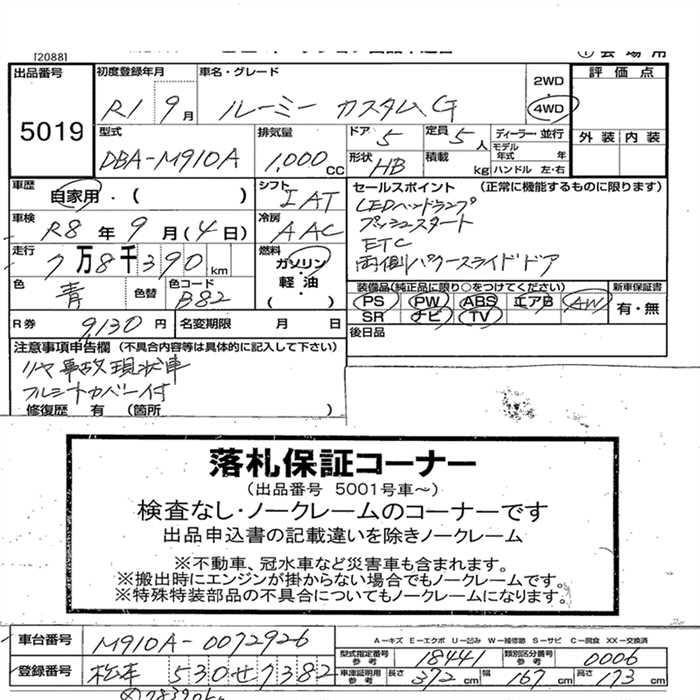 [2088]
① 会場用
出品番号 5019
初度登録年月 R1 9月
車名・グレード ルーミー カスタムG
2WD
4WD
評価点
外装 内装
型式 DBA-M910A
排気量 1,000 CC
ドア 5
定員 5人
形状 HB
積載 kg
ディーラー・並行
モデル年式 年
ハンドル 左・右
車歴 自家用・( )
シフト IAT
車検 R8年 9月(4日)
冷房 AAC
走行 7万8千390 km
燃料 ガソリン・軽油・( )
色 青
色替
色コード B82
R券 9,130円
名変期限 月 日
セールスポイント (正常に機能するものに限ります)
LEDヘッドランプ
プッシュスタート
ETC
両側パワースライドドア
装備品(純正品に限り○をつけてください)
PS PW ABS エアB AW
SR ナビ TV
新車保証書
有・無
後日品
注意事項申告欄 (不具合内容等は具体的に記入して下さい)
リヤ事故現状車
フルシートカバー付
修復歴 有 (箇所 )
落札保証コーナー
(出品番号 5001号車～)
検査なし・ノークレームのコーナーです
出品申込書の記載違いを除きノークレーム
※不動車、冠水車など災害車も含まれます。
※搬出時にエンジンが掛からない場合でもノークレームです。
※特殊特装部品の不具合についてもノークレームになります。
車台番号 M910A-0072926
A－キズ E－エクボ U－凹み W－補修跡 S－サビ C－腐食 XX－交換済
型式指定番号 参考 18441
類別区分番号 参考 0006
登録番号 松本 530 せ 7382
車庫証明用 参考 長さ 372 cm 幅 167 cm 高さ 173 cm